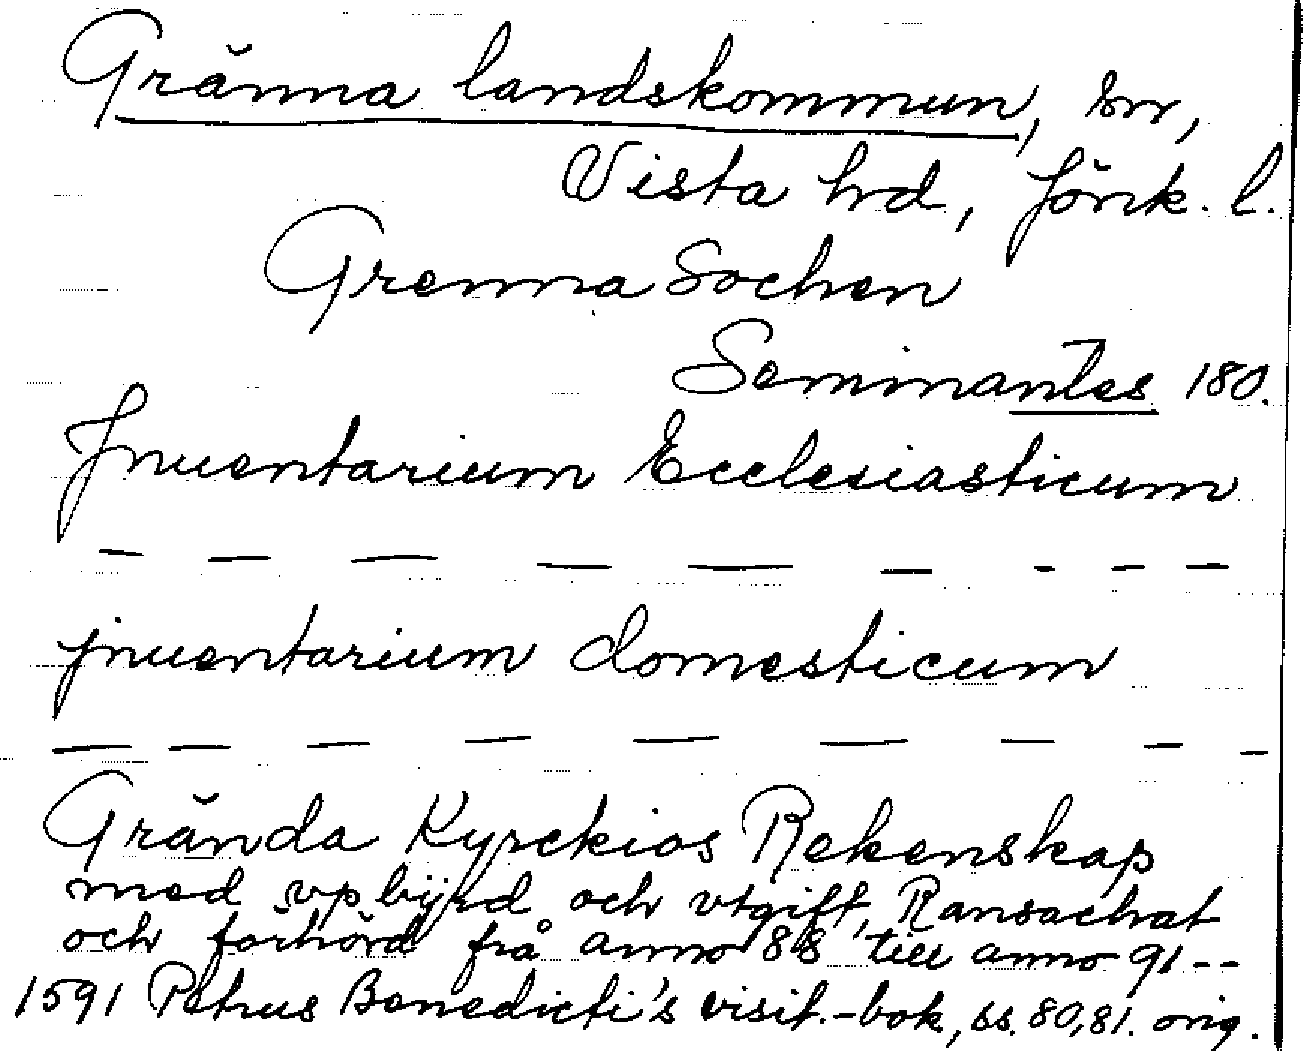 Gränna landskommun, snr,
Vista hrd, Jönk. l.
Grenna Sochen
Seminantes 180.
Jnuentarium Ecclesiasticum
— — — — — — - — —
jnuentarium domesticum
— — — — — — — — —
Grända Kyrckios Rekenskap
med vpbyrd och vtgift, Ransachat
och förhörd frå anno 88 till anno 91--
1591 Petrus Benedicti's visit.-bok, ss. 80,81. orig.